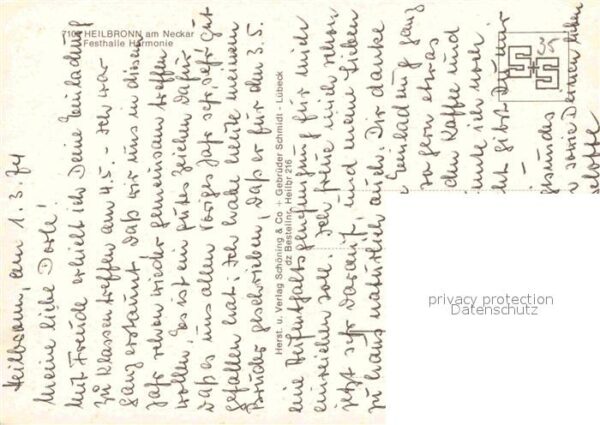 7100 HEILBRONN am Neckar
Festhalle Harmonie
Herst. u. Verlag Schöning & Co + Gebrüder Schmidt - Lübeck
dz Bestellnr. Heilbr 216
Heilbronn, am 1.3.74
Meine liebe Dorle!
Mit Freude erhielt ich Deine Einladung
zu Klassentreffen am 4.5 - Ich war
ganz erstaunt, daß wir uns in diesem
Jahr schon wieder gemeinsam treffen
wollen, es ist ein gutes Zeichen dafür
daß es uns allen voriges Jahr sehr, sehr gut
gefallen hat. Ich habe heute meinem
Bruder geschrieben, daß er für den 3.5.
eine Aufenthaltsgenehmigung für mich
einreichen soll. Ich freue mich schon
jetzt sehr darauf, und meine Lieben
zu haus natürlich auch. Dir danke
Einladung ganz
so gern etwas
den Kaffe und
ich noch
gibst Du nur
gesundes
sowie Deinen lieben
privacy protection
Datenschutz